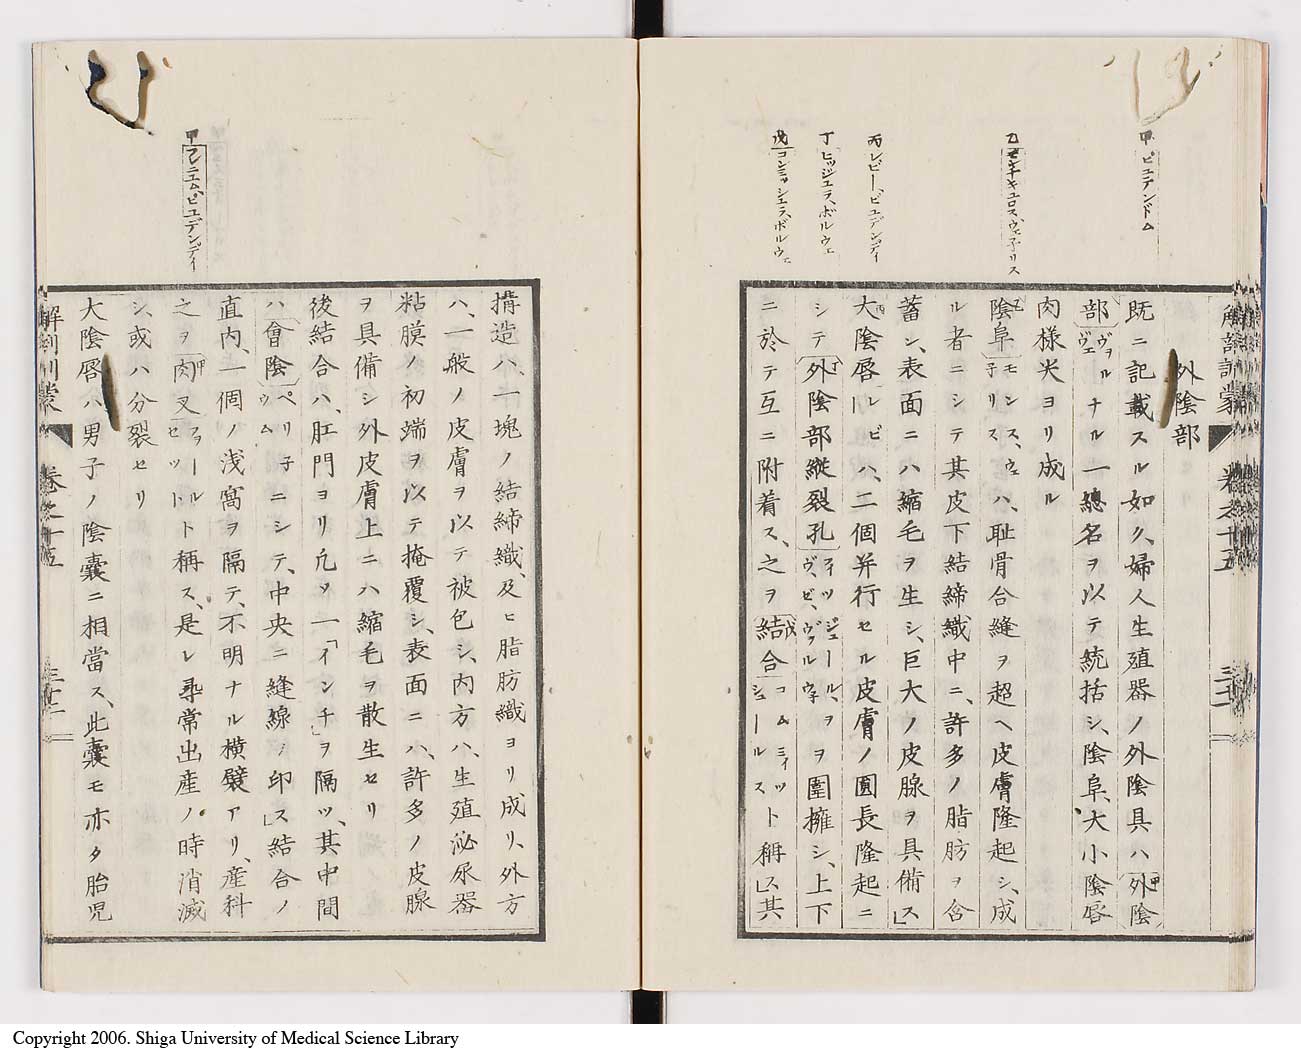 甲ピュデンドム
乙モンチキュロス、ウェ子リス
丙レビー、ピュデンディ
丁ヒッシュラ、ボルウェ
戊コンミッシュラ、ボルウェ
解剖訓蒙 卷之十五
外陰部
既ニ記載スル如ク、婦人生殖器ノ外陰具ハ外陰
部ヴェヴァルナル一總名ヲ以テ統括シ、陰阜、大小陰唇
肉様尖ヨリ成ル
陰阜モンス、ウェ子リスハ、耻骨合縫ヲ超ヘ皮膚隆起シ、成
ル者ニシテ其皮下結締織中ニ、許多ノ脂肪ヲ含
蓄シ、表面ニハ縮毛ヲ生シ、巨大ノ皮腺ヲ具備ス」
大陰唇レビハ、二個并行セル皮膚ノ圓長隆起ニ
シテ外陰部縱裂孔ヲ圍擁シ、上下
ニ於テ互ニ附着ス、之ヲ結合コムミィッシュールスト稱ス」其
甲フレニュム、ピュデンディ
構造ハ、一塊ノ結締織、及ヒ脂肪織ヨリ成リ、外方
ハ、一般ノ皮膚ヲ以テ被包シ、内方ハ、生殖泌尿器
粘膜ノ初端ヲ以テ掩覆シ、表面ニハ、許多ノ皮腺
ヲ具備シ外皮膚上ニハ縮毛ヲ散生セリ
後結合ハ、肛門ヨリ凡ソ一「インチ」ヲ隔ツ、其中間
ハ會陰ペリ子ウムニシテ、中央ニ縫線ノ印ス」結合ノ
直内、一個ノ浅窩ヲ隔テ、不明ナル横襞アリ、産科
之ヲ肉叉フォールセットト稱ス、是レ尋常出産ノ時消滅
シ、或ハ分裂セリ
大陰唇ハ男子ノ陰嚢ニ相當ス、此嚢モ亦タ胎児
解剖訓蒙 卷之十五
Copyright 2006. Shiga University of Medical Science Library